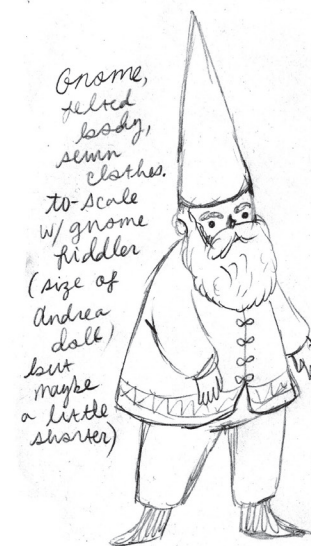 Gnome,
felted
body,
sewn
clothes.
to-scale
w/ gnome
fiddler
(size of
Andrea
doll)
but
maybe
a little
shorter)